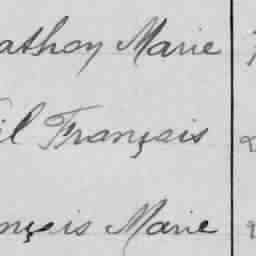 athoy Marie
il François
nçois Marie